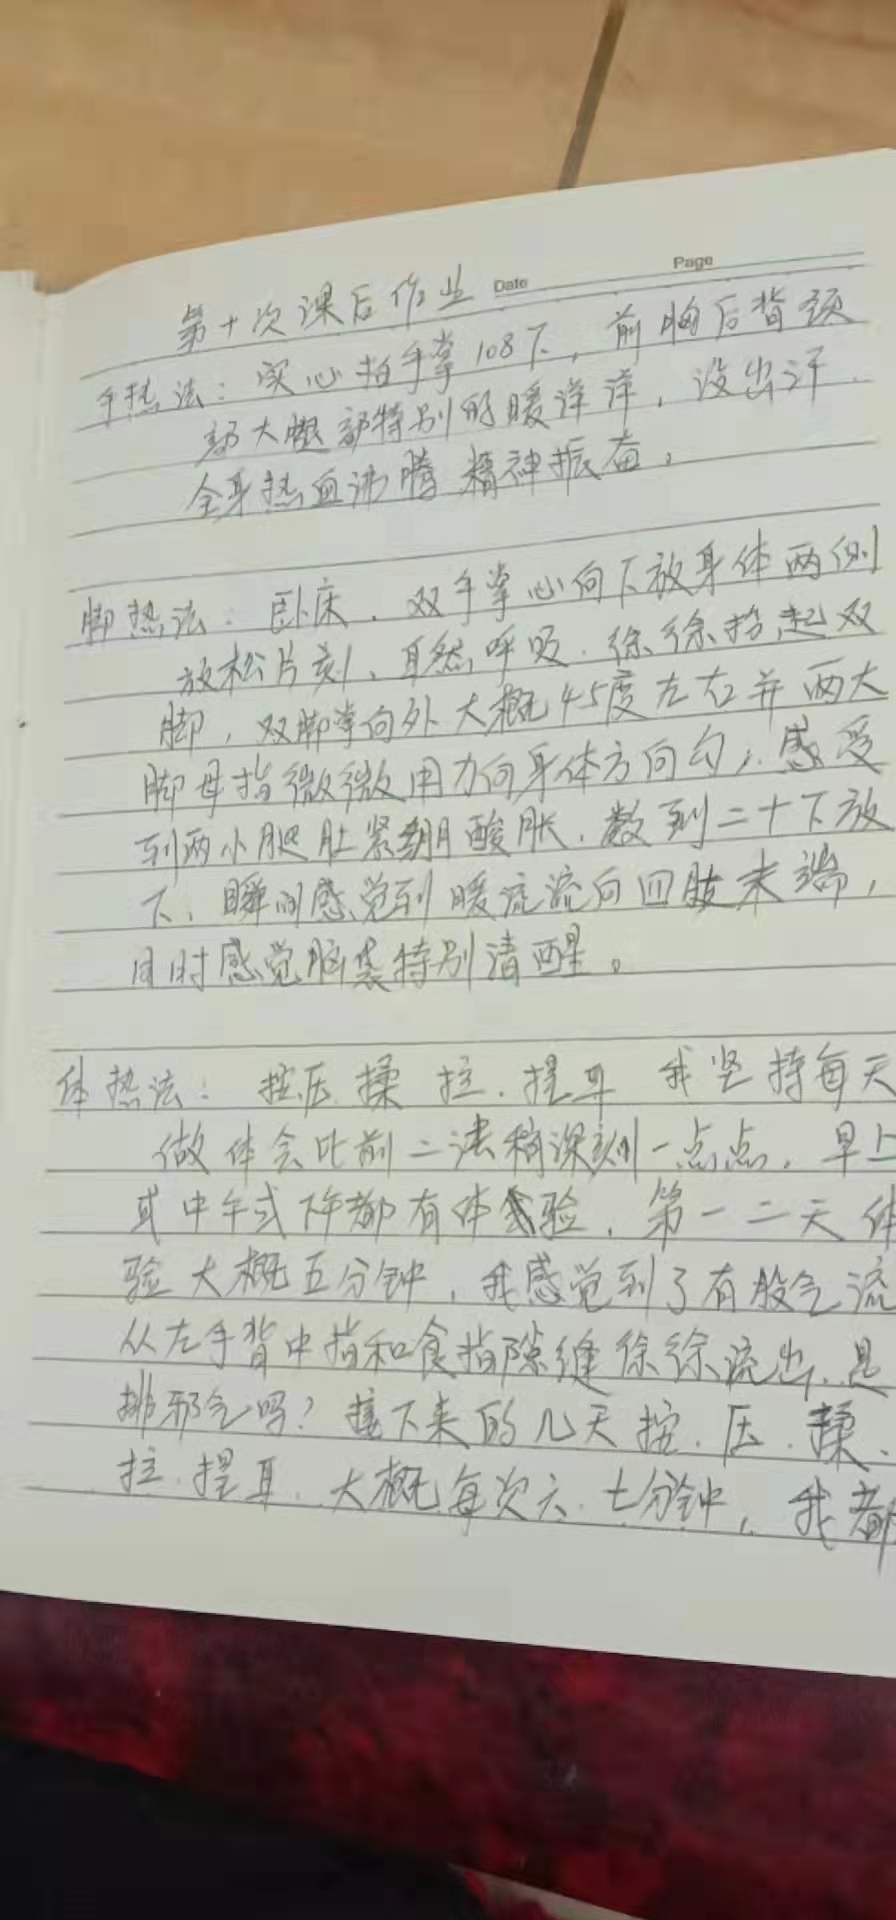 Date
Page
第十次课后作业
手热法：实心拍手掌108下，前胸后背颈
部大腿部特别的暖洋洋，没出汗.
全身热血沸腾 精神振奋。
脚热法：卧床、双手掌心向下放身体两侧
放松片刻、自然呼吸.徐徐抬起双
脚，双脚掌向外大概45度左右并两大
脚母指微微用力向身体方向勾，感受
到两小腿肚紧绷酸胀.数到二十下放
下、瞬间感觉到暖流流向四肢末端，
同时感觉脑袋特别清醒。
体热法：按压 揉 拉.提耳 我坚持每天
做体会比前二法稍深刻一点点，早上
或中午或下午都有体验，第一二天体
验大概五分钟，我感觉到了有股气流
从左手背中指和食指隙缝徐徐流出.是
排邪气吗？接下来的几天按.压.揉、
拉.提耳.大概每次六.七分钟，我都